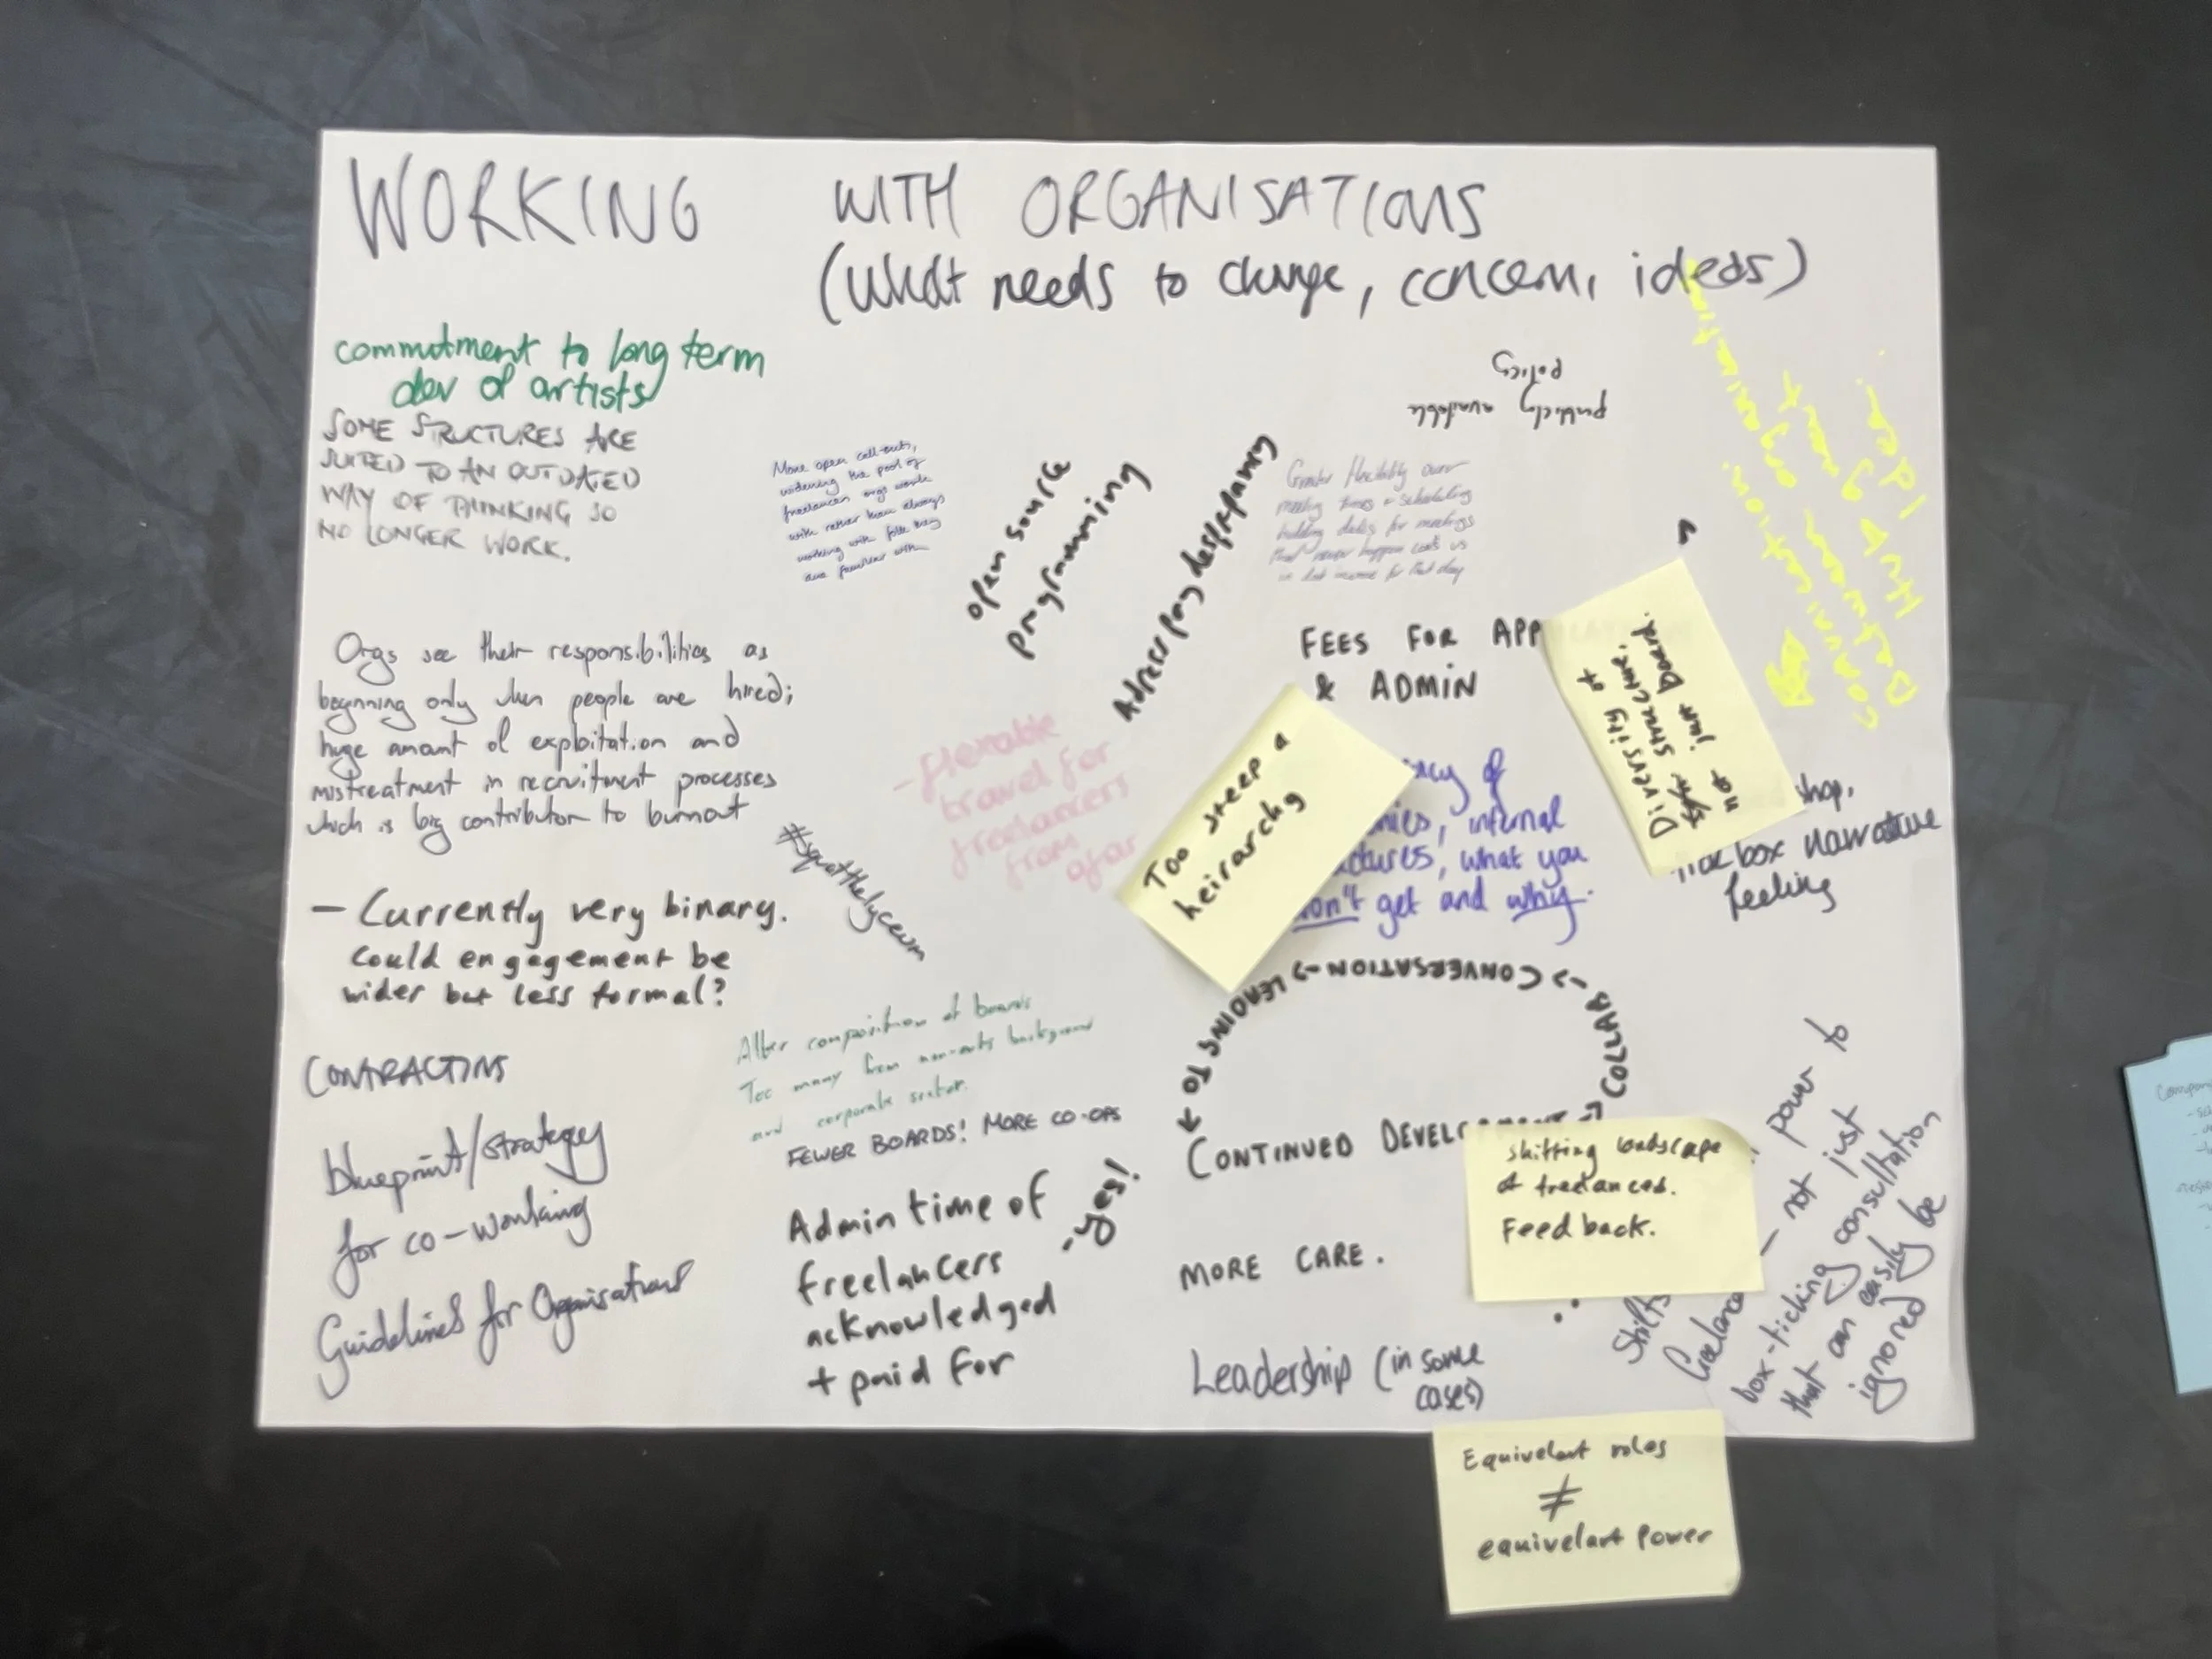 WORKING WITH ORGANISATIONS
(What needs to change, concern, ideas)
commitment to long term
dev of artists
SOME STRUCTURES ARE
SUITED TO AN OUTDATED
WAY OF THINKING SO
NO LONGER WORK.
Orgs see their responsibilities as
beginning only when people are hired;
huge amount of exploitation and
mistreatment in recruitment processes
which is big contributor to burnout
- Currently very binary.
Could engagement be
wider but less formal?
CONTRACTING
blueprint/strategy
for co-working
Guidelines for Organisations
More open call-outs,
widening the pool of
freelancers orgs work
with rather than always
working with folk they
are familiar with
#squatthelyceum
Alter composition of boards
Too many from non-arts background
and corporate sector.
FEWER BOARDS! MORE CO-OPS
Admin time of
freelancers
acknowledged
+ paid for
- yes!
open source
programming
Address pay
- flexable
travel for
freelancers
from
afar
publicly available
policy
Greater flexibility over
meeting times + scheduling
holding dates for meetings
that never happen costs us
in lost income for that day
FEES FOR APP
& ADMIN
Too steep a
heirarchy
of
internal
what you
don't get and why.
Diversity of
structure.
not just Board.
shop,
box narrative
feeling
-> CONVERSATION -> LEADING TO ->
COLLAB
CONTINUED
MORE CARE.
Leadership (in some
cases)
shifting landscape
of freelancers.
Feedback.
power to
- not just
box-ticking consultation
that can easily be
ignored
Equivelant roles
≠
equivelant power